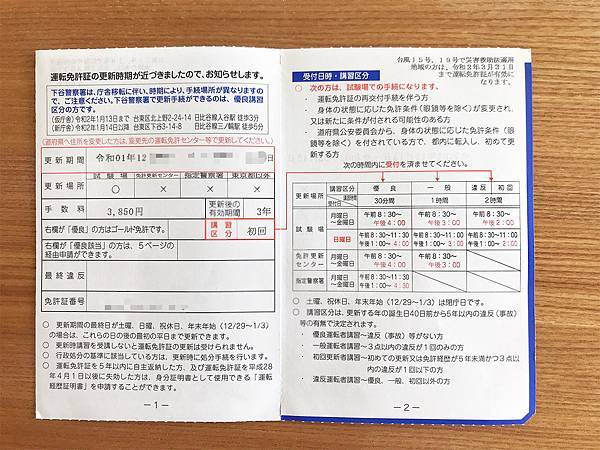 運転免許証の更新時期が近づきましたので、お知らせします。
下谷警察署は、庁舎移転に伴い、時期により、手続場所が異なりますので、ご注意ください。下谷警察署で更新手続ができるのは、優良講習区分の方です。
(仮庁舎)令和2年1月13日まで 台東区東上野2-24-14 日比谷線入谷駅 徒歩3分
(新庁舎)令和2年1月14日以降 台東区下谷3-14-8 日比谷線三ノ輪駅 徒歩5分
(道府県へ住所を変更した方は、変更先の運転免許センター等で更新してください。)
更新期間 令和01年12
更新場所 試験場 免許更新センター 指定警察署 東京都以外
○ × × ×
手数料 3,850円 更新後の有効期間 3年
右欄が「優良」の方はゴールド免許です。 講習区分 初回
右欄が「優良該当」の方は、5ページの
経由申請ができます。
最終違反
免許証番号
○ 更新期間の最終日が土曜、日曜、祝休日、年末年始(12/29~1/3)
の場合は、これらの日の後の最初の平日まで更新できます。
○ 更新時講習を受講しないと運転免許証の更新は受けられません。
○ 行政処分の基準に該当している方は、更新時に処分手続を行います。
○ 運転免許証を5年以内に自主返納した方、及び運転免許証を平成28
年4月1日以後に失効した方は、身分証明書として使用できる「運転
経歴証明書」を申請することができます。
-1-
台風15号、19号で災害救助法適用
地域の方は、令和2年3月31日
まで運転免許証が有効に
なります。
受付日時・講習区分
○ 次の方は、試験場での手続になります。
・ 運転免許証の再交付手続を伴う方
・ 身体の状態に応じた免許条件(眼鏡等を除く)が変更され、
又は新たに条件が付される可能性のある方
・ 道府県公安委員会から、身体の状態に応じた免許条件(眼
鏡等を除く)を付されている方で、都内に転入し、初めて更
新する方
次の時間内に受付を済ませてください。
更新場所 講習区分 優良 一般 違反 初回
受付日 講習時間 30分間 1時間 2時間
試験場 月曜日~金曜日 午前8:30~午後4:00 午前8:30~午後3:00 午前8:30~午後2:00
日曜日 午前8:30~11:30 午後1:00~4:00 午前8:30~11:30 午後1:00~3:00 午前8:30~11:30 午後1:00~2:00
免許更新センター 月曜日~金曜日 午前8:30~午後4:00 午前8:30~午後3:00
指定警察署 月曜日~金曜日 午前8:30~11:30 午後1:00~4:30
○ 土曜、祝休日、年末年始(12/29~1/3)は閉庁日です。
○ 講習区分は、更新する年の誕生日40日前から5年以内の違反(事故)
等の有無で決定されます。
・ 優良運転者講習~違反(事故)等がない方
・ 一般運転者講習~3点以内の違反が1回のみの方
・ 初回更新者講習~初めての更新又は免許経歴が5年未満かつ3点以
内の違反が1回以下の方
・ 違反運転者講習~優良、一般、初回以外の方
-2-